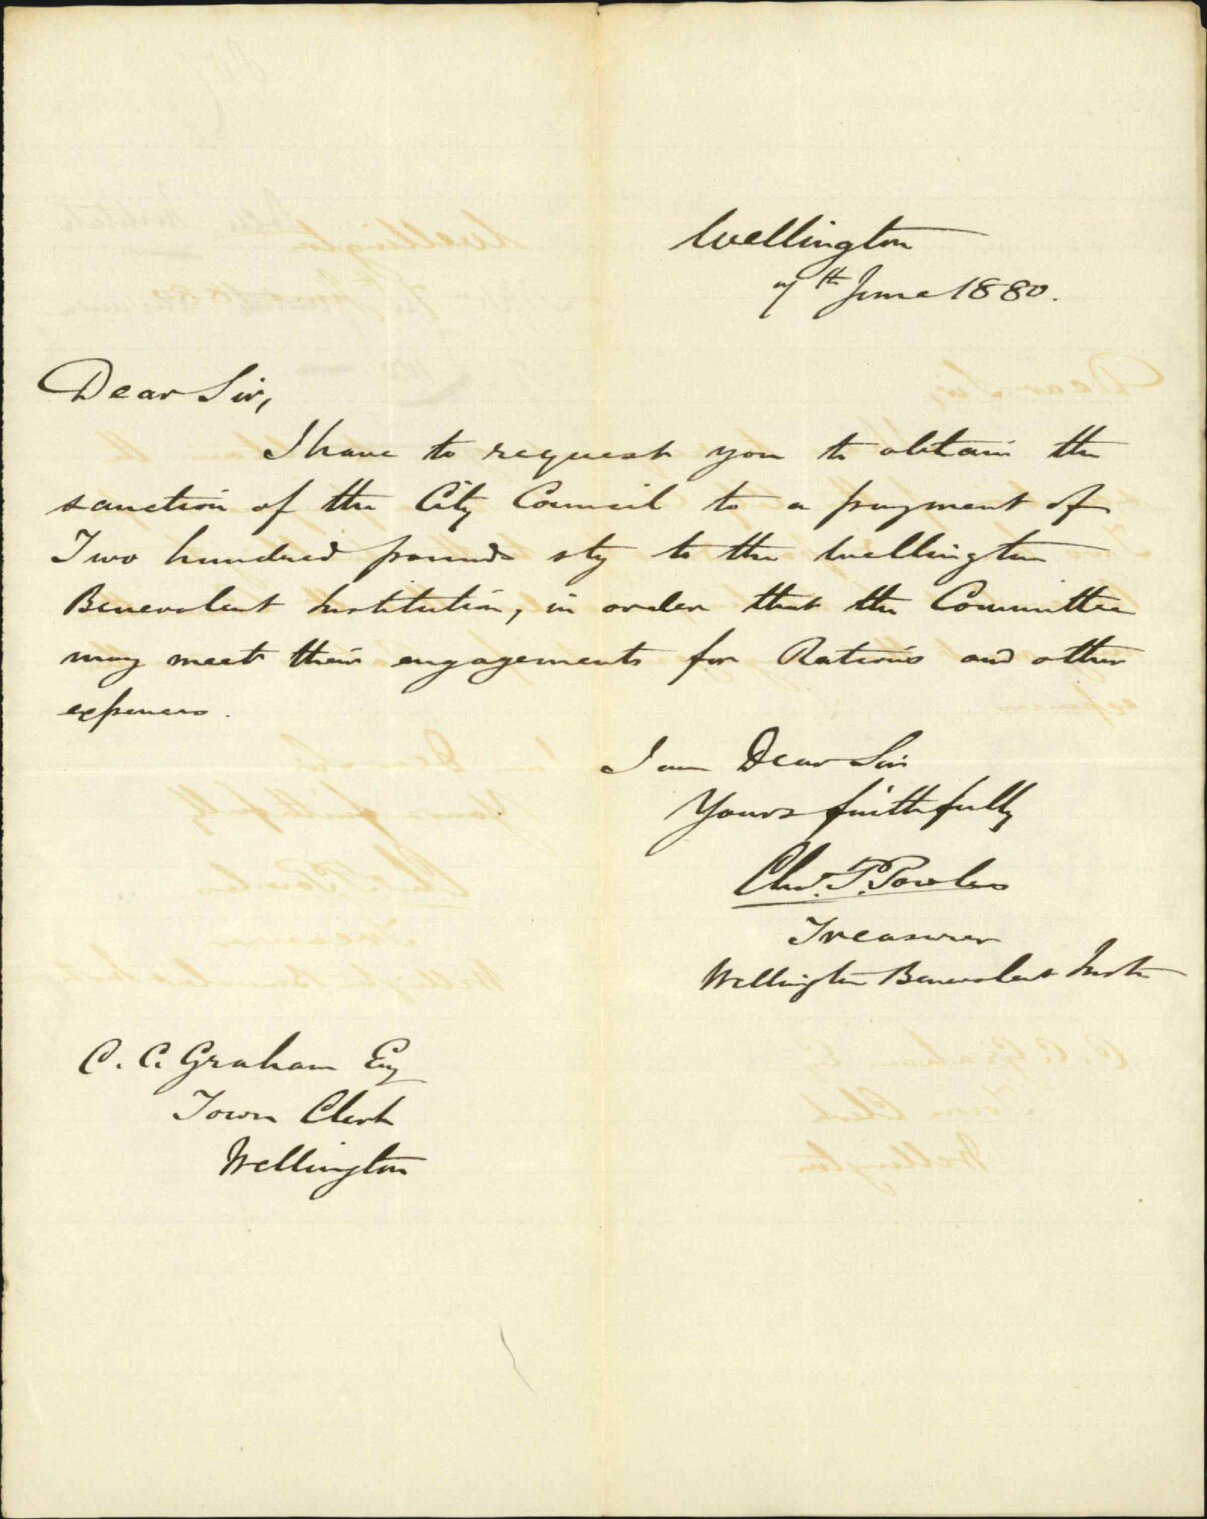 Wellington
7th June 1880.
Dear Sir,
I have to request you to obtain the
sanction of the City Council to a payment of
Two hundred pounds stg to the Wellington
Benevolent Institution, in order that the Committee
may meet their engagements for Rations and other
expenses.
I am Dear Sir
Yours faithfully
Chas. P. Powles
Treasurer
Wellington Benevolent Instn
C. C. Graham Esq
Town Clerk
Wellington